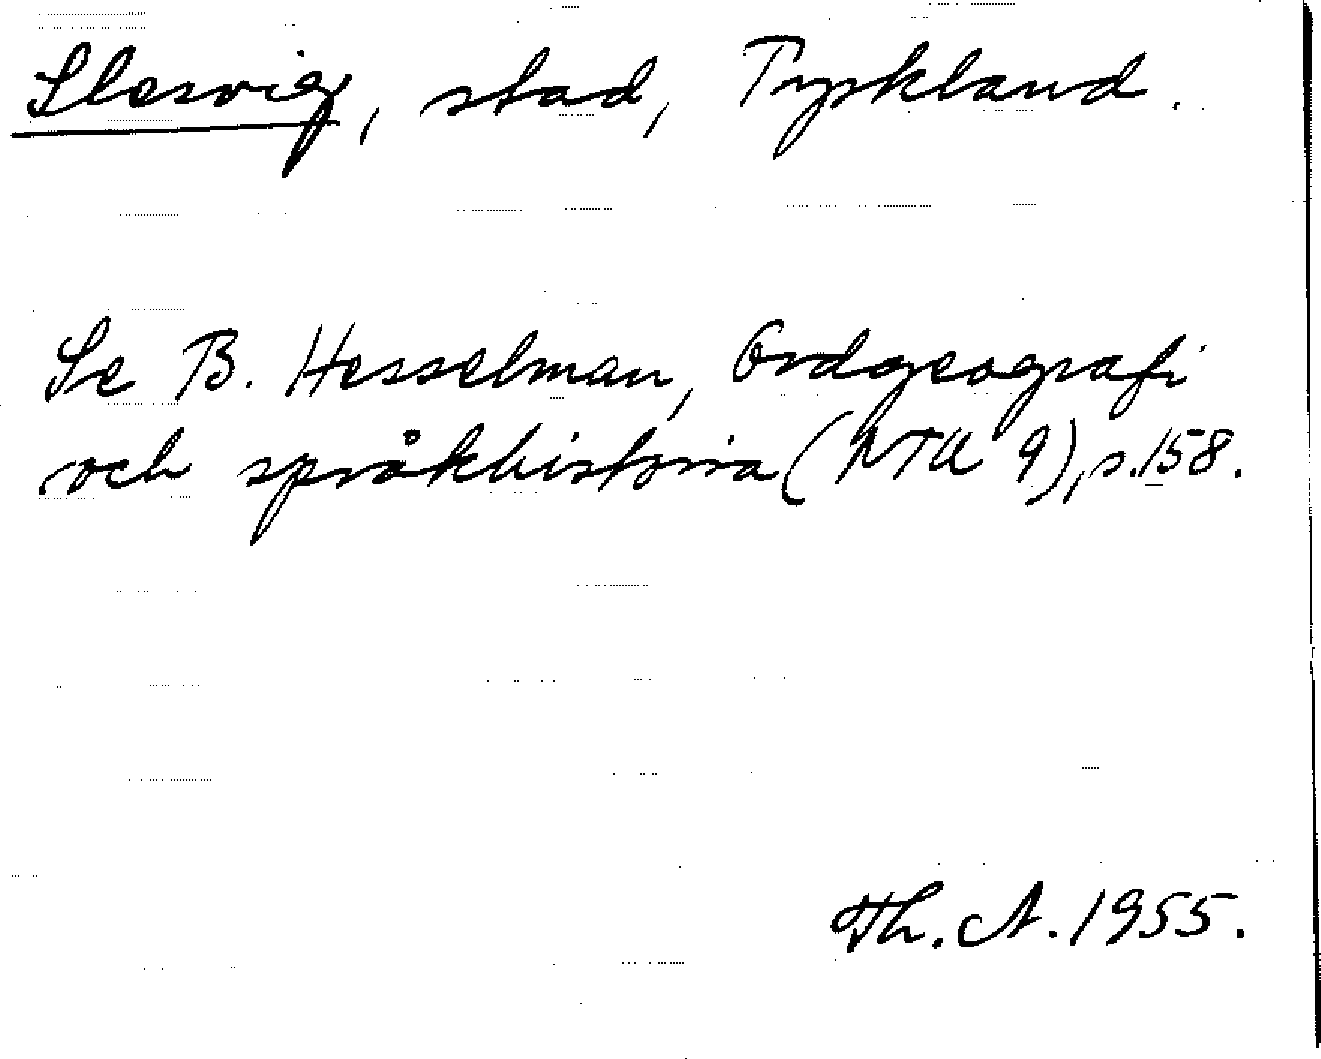 Slesvig, stad, Tyskland.
Se B. Hesselman, Ordgeografi
och språkhistoria (NTU 9), s. 158.
Th. A. 1955.